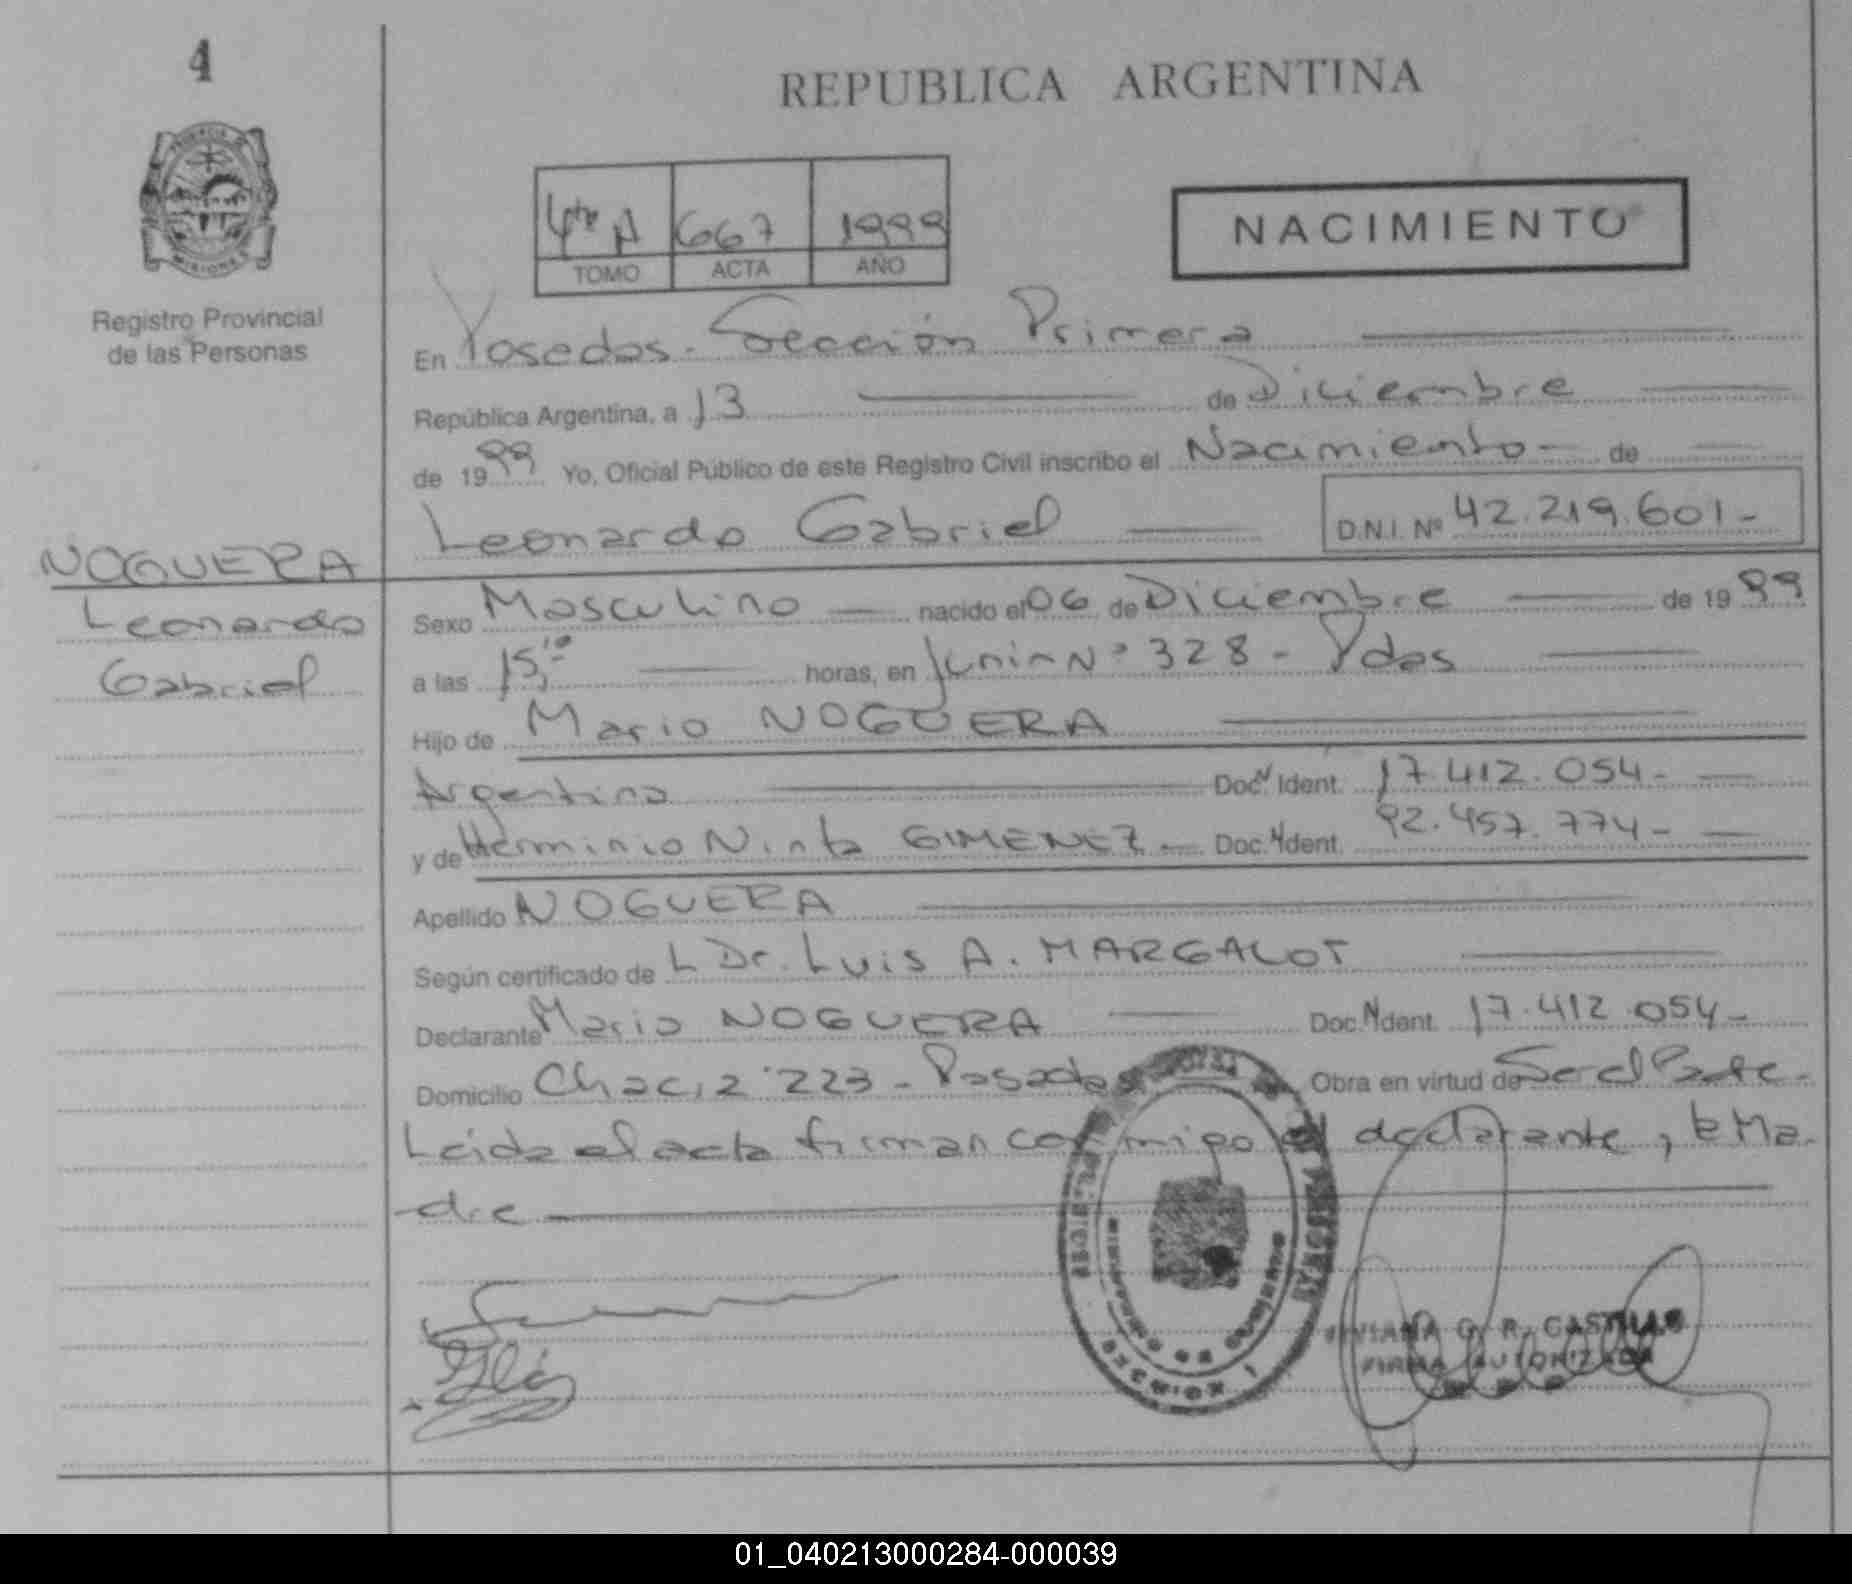 4
REPUBLICA ARGENTINA
4to A 667 1999
TOMO ACTA AÑO
NACIMIENTO
PROVINCIA DE
MISIONES
Registro Provincial
de las Personas
En Posadas - Sección Primera
República Argentina, a 13 de Diciembre
de 1999 Yo, Oficial Público de este Registro Civil inscribo el Nacimiento - de
Leonardo Gabriel D.N.I. Nº 42.219.601-
NOGUERA
Leonardo
Gabriel
Sexo Masculino nacido el 06 de Diciembre de 1999
a las 15,10 horas, en Junin Nº 328 - Pdas
Hijo de Mario NOGUERA
Argentino Doc. Ident. 17.412.054-
y de Herminia Ninfa GIMENEZ - Doc. Ident. 92.457.774-
Apellido NOGUERA
Según certificado de L Dr. Luis A. MARGALOT
Declarante Mario NOGUERA Doc. Ident. 17.412.054-
Domicilio Chacra 223 - Posadas Obra en virtud de Ser el Padre -
Leida el acta firman conmigo el declarante, la Ma-
dre
VIVIANA G. R. CASTILLO
FIRMA AUTORIZADA
01_040213000284-000039